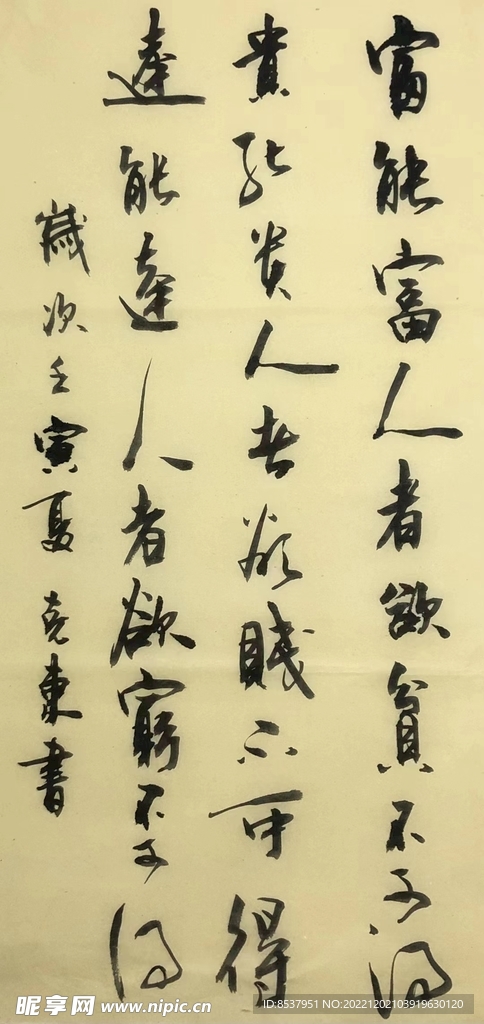 富能富人者欲貧不可得
貴能贵人者欲賤不可得
達能達人者欲窮不可得
歲次壬寅夏 克東書
昵享网 www.nipic.cn
ID:8537951 NO:20221202103919630120